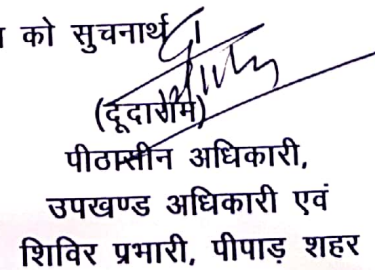 को सुचनार्थ।
(दूदाराम)
पीठासीन अधिकारी,
उपखण्ड अधिकारी एवं
शिविर प्रभारी, पीपाड़ शहर